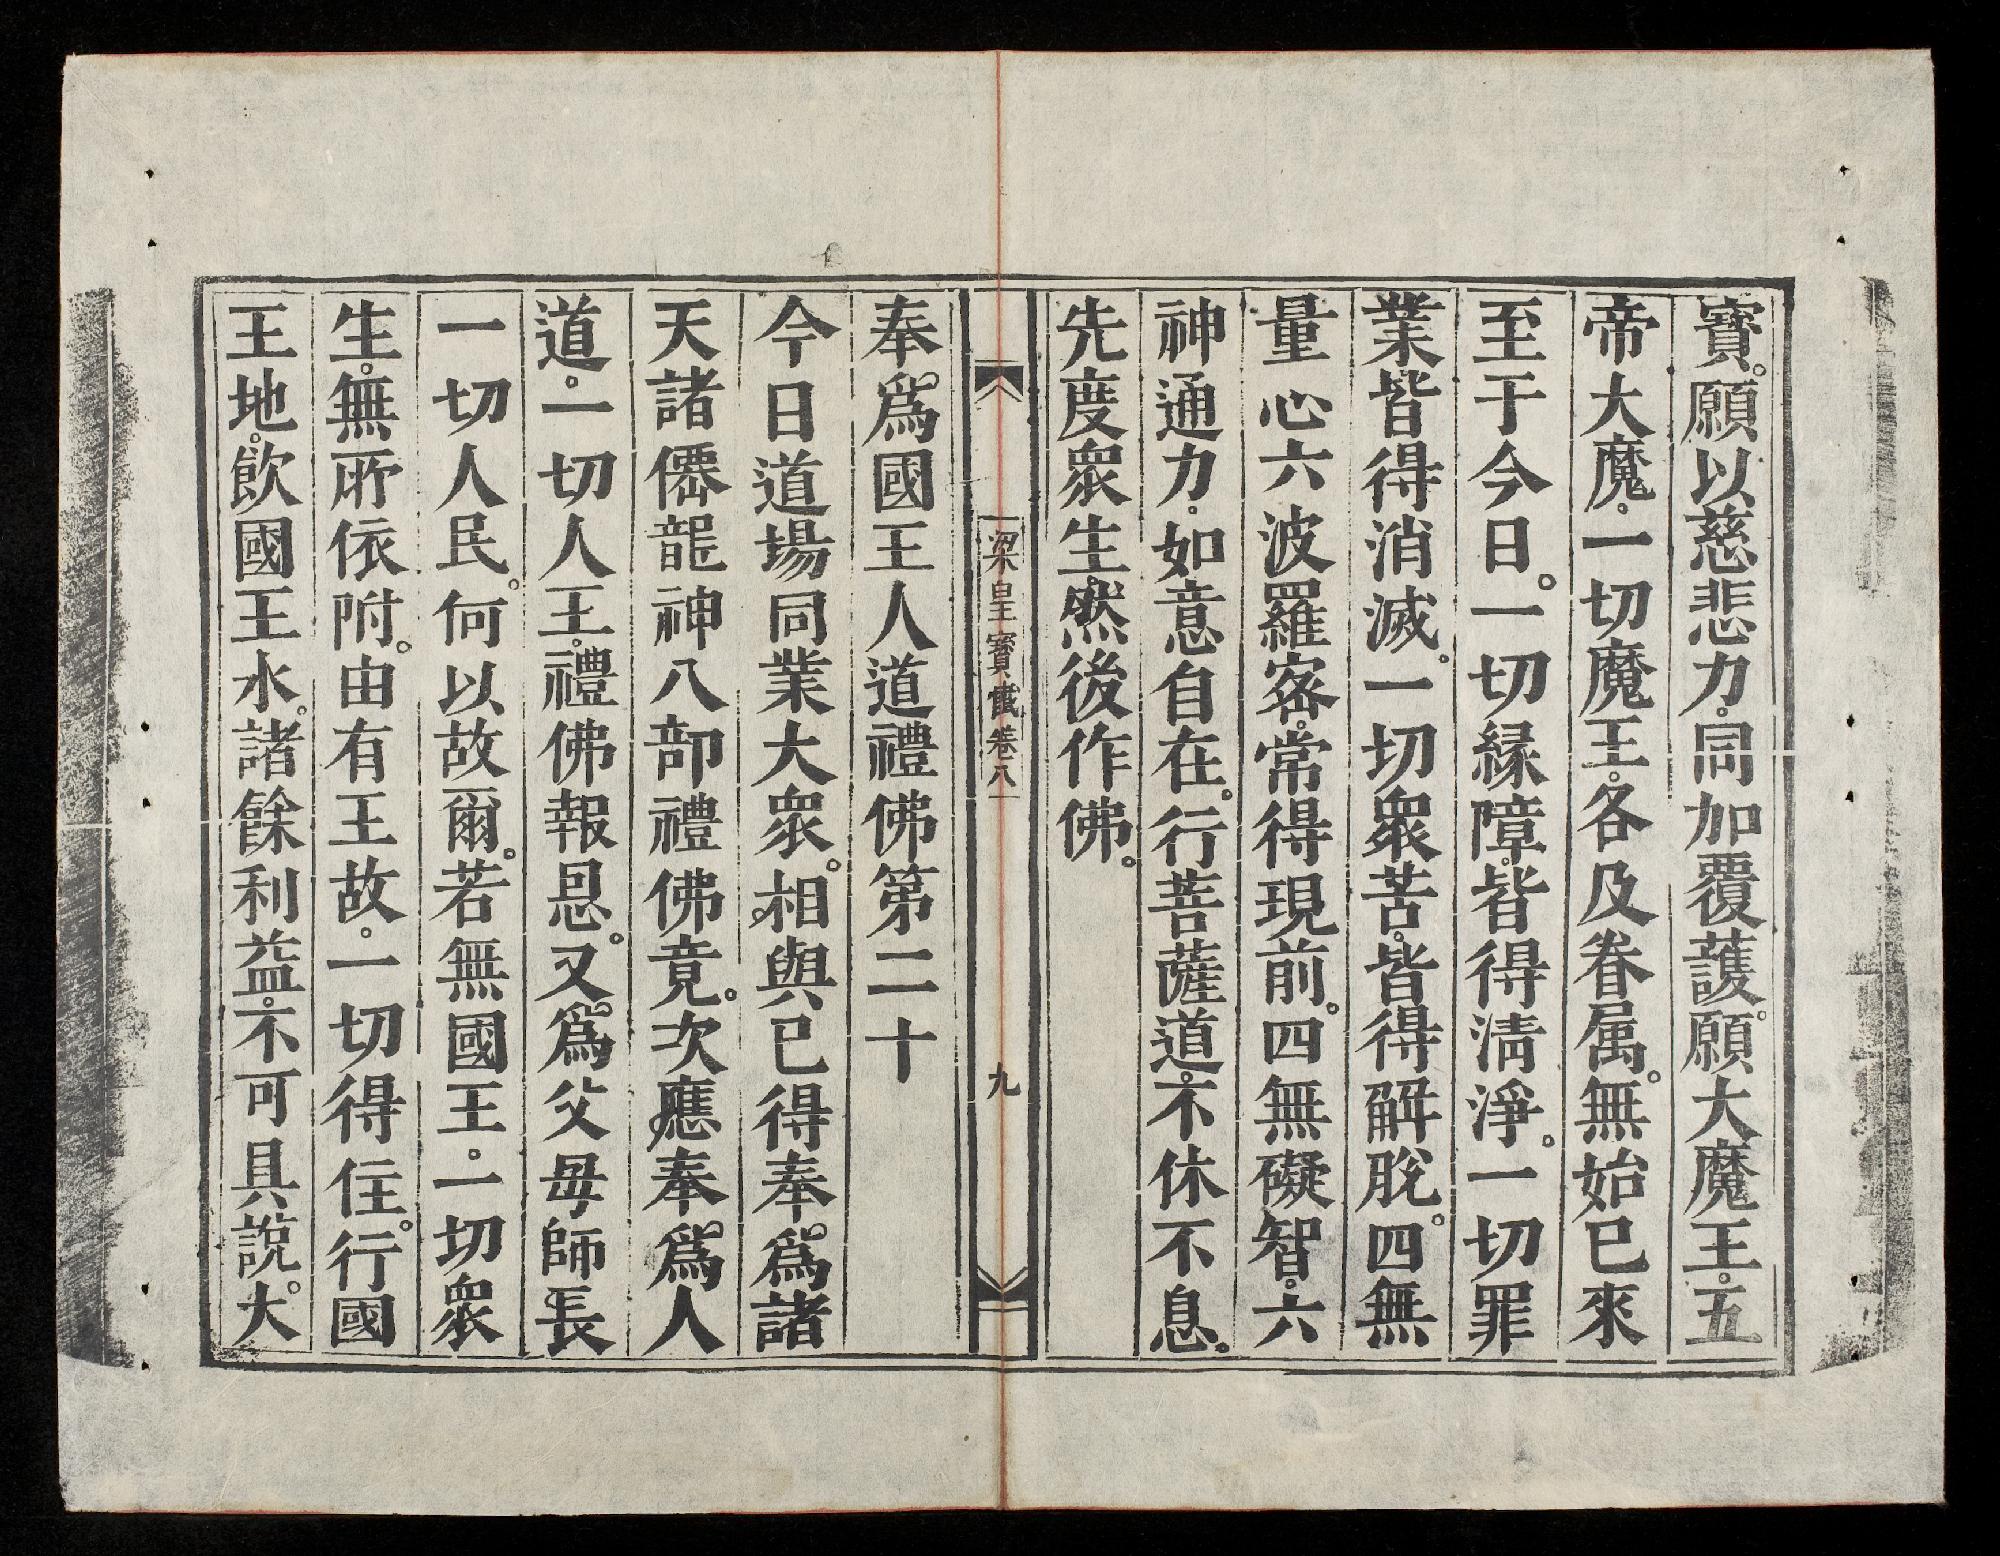 寳。願以慈悲力。同加覆護。願大魔王。五
帝大魔。一切魔王。各及眷属。無始已來
至于今日。一切緣障。皆得淸淨。一切罪
業皆得消滅。一切衆苦。皆得解脫。四無
量心六波羅宻。常得現前。四無礙智。六
神通力。如意自在。行菩薩道。不休不息。
先度衆生。然後作佛。
梁皇寳懺卷八
九
奉。爲國王人道禮佛第二十
今日道場同業大衆。相與已得奉。爲諸
天諸僊龍神八部禮佛竟。次應奉。爲人
道。一切人王。禮佛報恩。又。爲父母師長
一切人民。何以故爾。若無國王。一切衆
生。無所依附。由有王故。一切得住。行國
王地。飮國王水。諸餘利益。不可具說。大